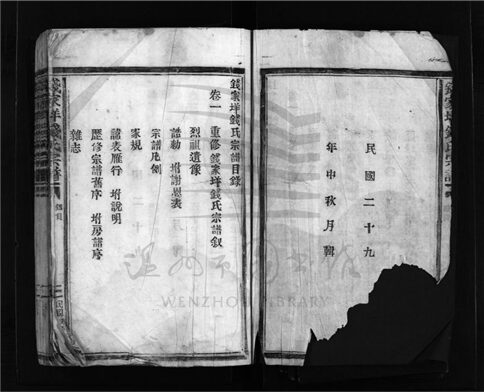 民國二十九
年中秋月輯
錢家垟錢氏宗譜目錄
卷一
重修錢家垟錢氏宗譜叙
烈祖遺像
誥勅 坿謝恩表
宗譜凡例
家規
譜表雁行 坿說明
歷修宗譜舊序 坿房譜序
雜志
錢家垟錢氏宗譜
目錄
民國
WENZHOU LIBRARY